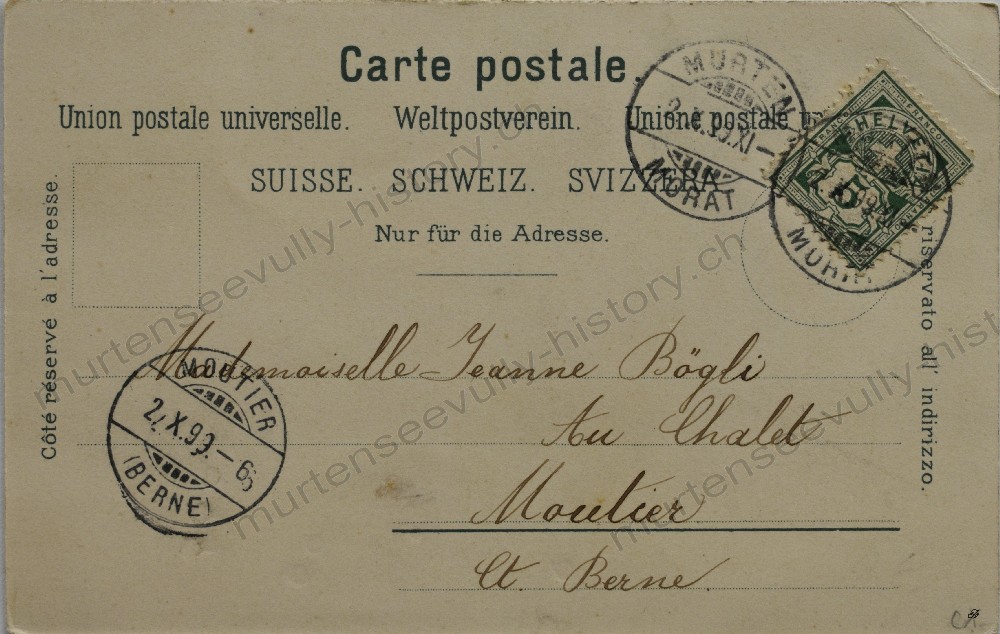 Carte postale.
Union postale universelle. Weltpostverein. Unione postale un
SUISSE. SCHWEIZ. SVIZZERA
Nur für die Adresse.
Côté réservé à l'adresse.
riservato all' indirizzo.
MURTEN
2.X.99.XI–
MORAT
HELVETIA
FRANCO
5
MURTEN
MOUTIER
2.X.99.–6
(BERNE)
Mademoiselle Jeanne Bögli
Au Chalet
Moutier
Ct. Berne
murtenseevully-history.ch
murtenseevully-history.ch
murtenseevully-history.ch